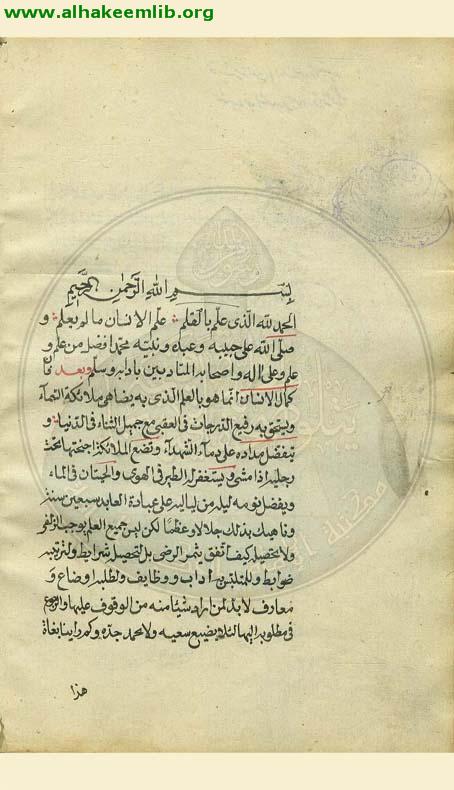 www.alhakeemlib.org
بسم الله الرحمن الرحيم
الحمد لله الذى علم بالقلم علم الانسان ما لم يعلم و
صلى الله على حبيبه وعبده ونبيه محمد افضل من علم و
علم وعلى اله واصحابه المتادبين بادابه وسلم وبعد فان
كمال الانسان انما هو بالعلم الذى به يضاهى ملائكة السماء
ويستحق به رفيع الدرجات فى العقبى مع جميل الثناء فى الدنيا و
يتفضل مداده على دماء الشهداء وتضع الملائكة اجنحتها تحت
رجليه اذا مشى ويستغفر له الطير فى الهوى والحيتان فى الماء
ويفضل نومة ليلة من لياليه على عبادة العابد سبعين سنة
وناهيك بذلك جلالا وعظما لكن ليس جميع العلم يوجب الزلفى
ولا تحصيله كيف اتفق يثمر الرضى بل لتحصيله شرايط ولترتيبه
ضوابط وللمتلبس به اداب ووظايف ولطلبه اوضاع و
معارف لابد لمن اراد شيئا منه من الوقوف عليها والرجوع
فى مطلوبه اليها لئلا يضيع سعيه ولا يخمد جده وكم راينا بغاة
هذا